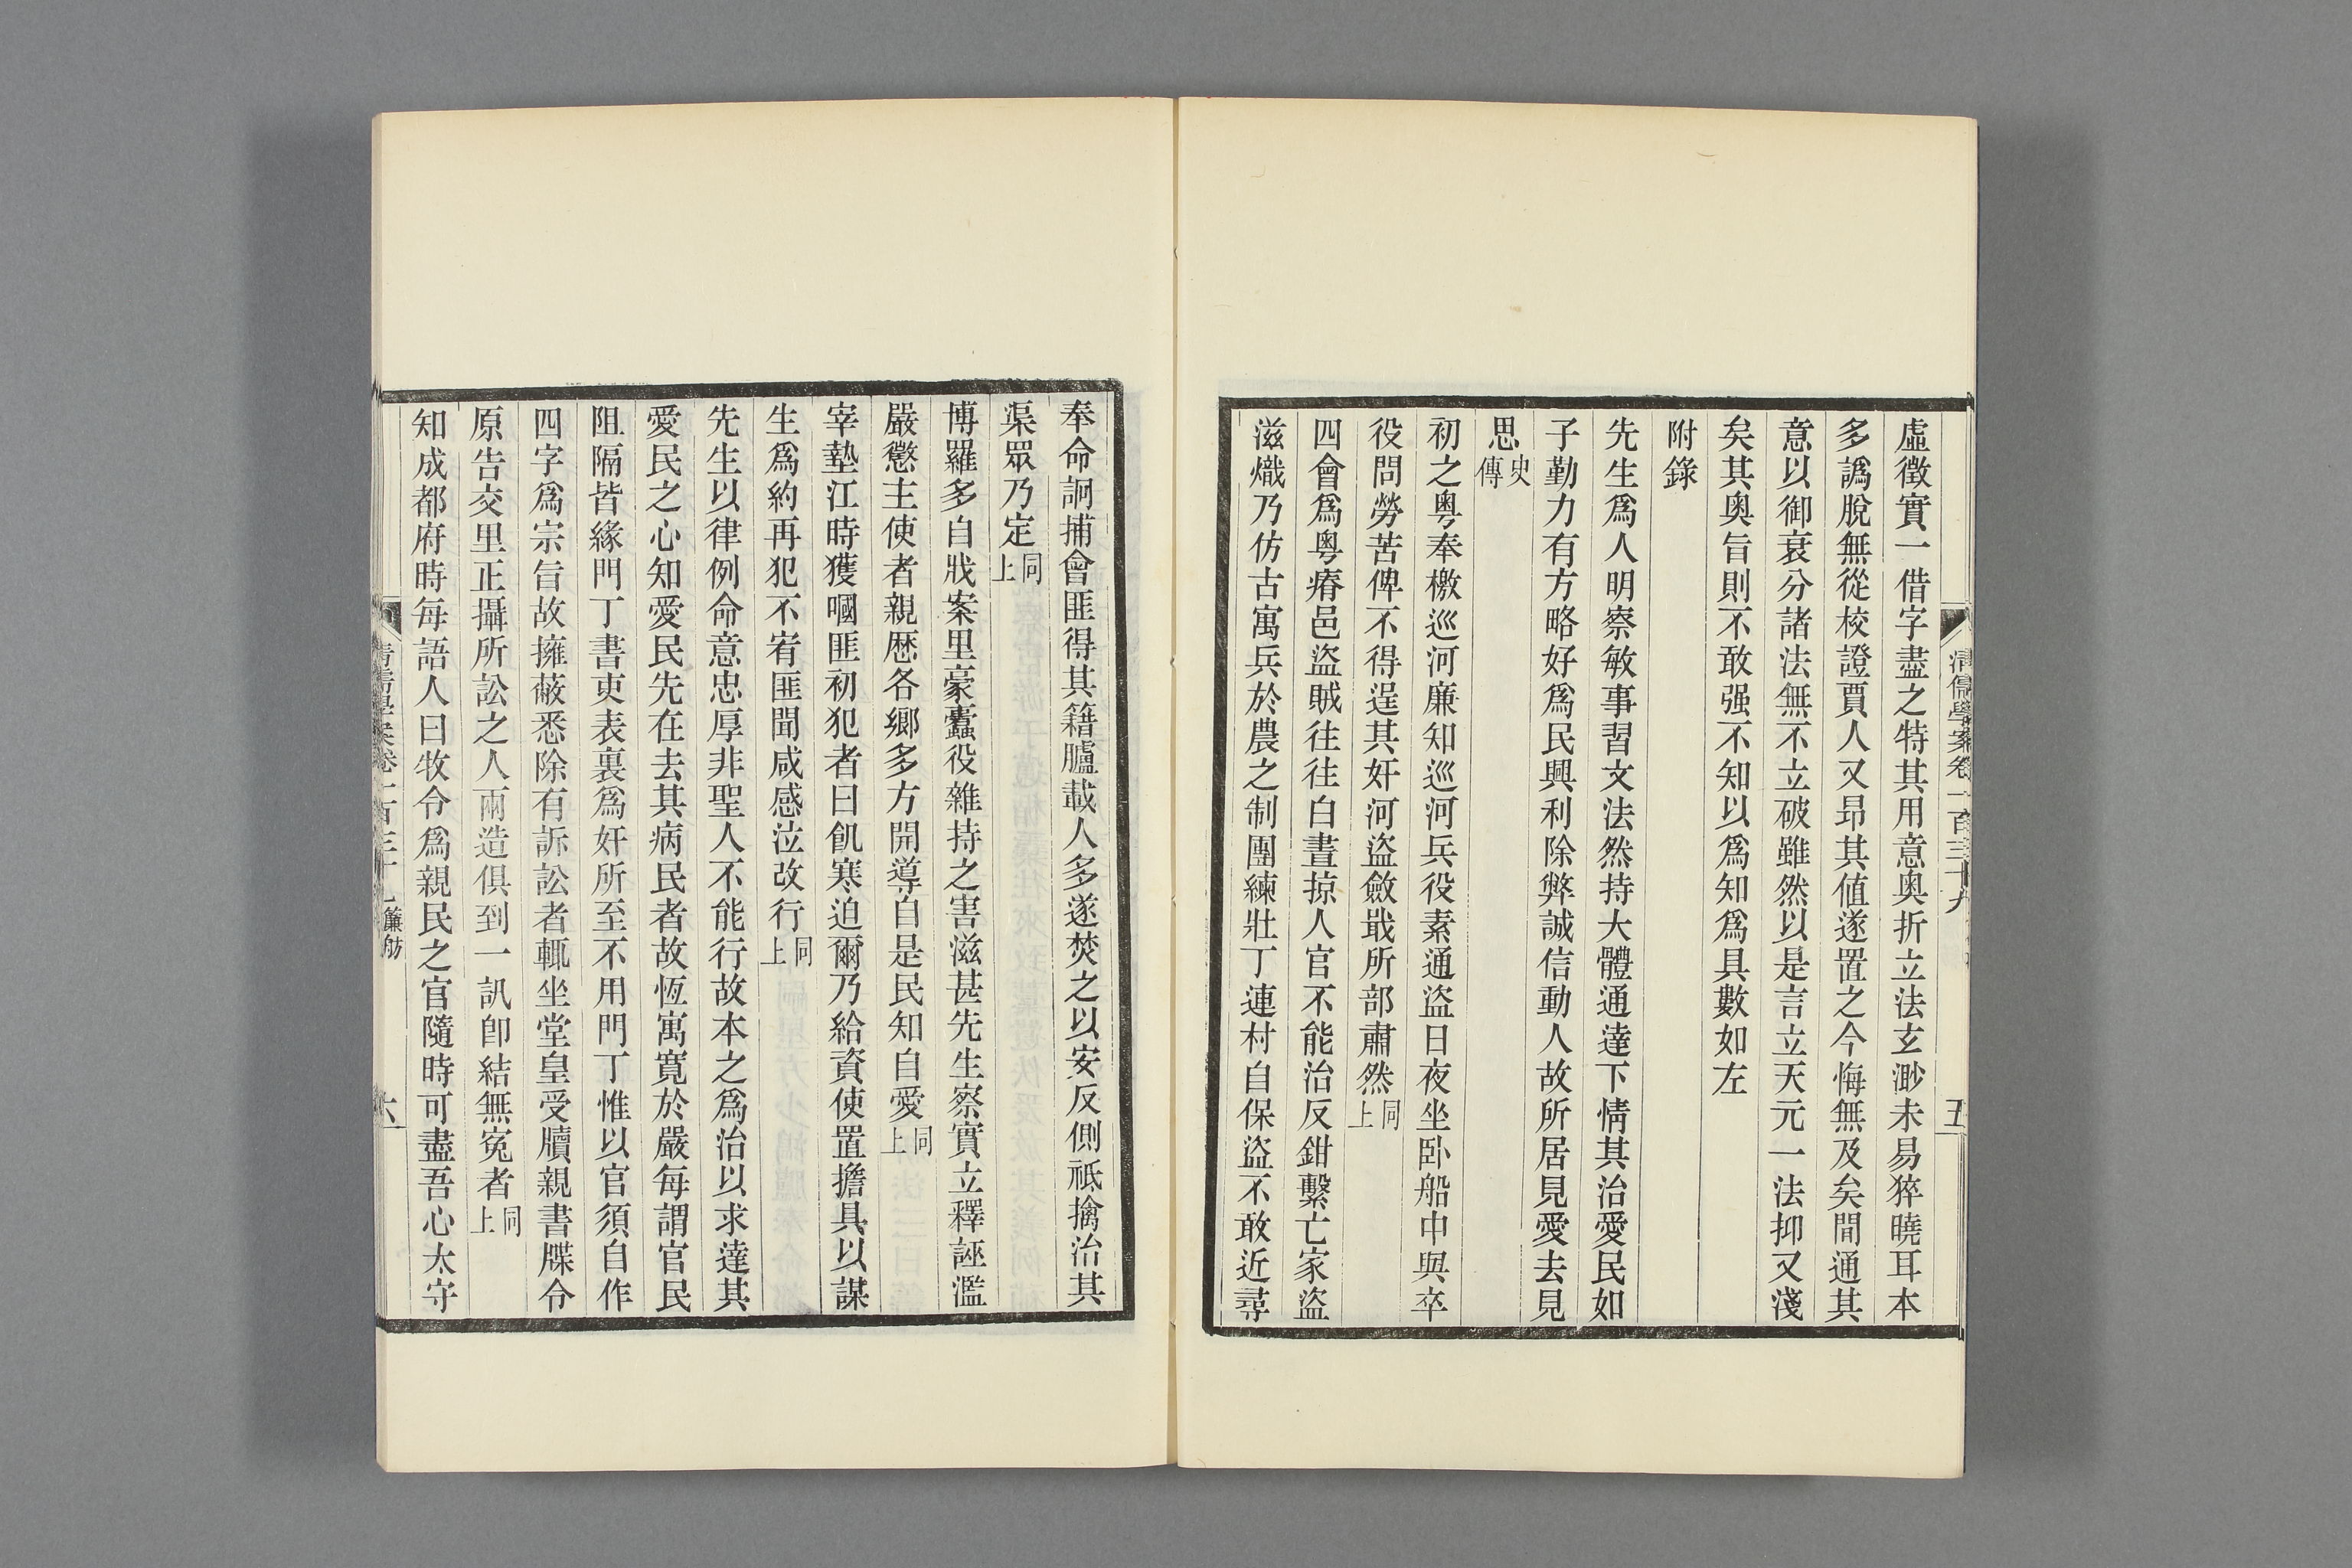 虛徵實一借字盡之特其用意奥折立法玄渺未易猝曉耳本
多譌脫無從校證賈人又昂其値遂置之今悔無及矣間通其
意以御衰分諸法無不立破雖然以是言立天元一法抑又淺
矣其奥旨則不敢强不知以爲知爲具數如左
附錄
先生爲人明察敏事習文法然持大體通達下情其治愛民如
子勤力有方略好爲民興利除弊誠信動人故所居見愛去見
思史傳
初之粤奉檄巡河廉知巡河兵役素通盜日夜坐卧船中與卒
役問勞苦俾不得逞其奸河盜斂戢所部肅然同上
四會爲粤瘠邑盜賊往往白晝掠人官不能治反鉗繫亡家盜
滋熾乃仿古寓兵於農之制團練壯丁連村自保盜不敢近尋
清儒學案卷一百三十九
五
奉命詗捕會匪得其籍臚載人多遂焚之以安反側祗擒治其
渠眾乃定同上
博羅多自戕案里豪蠹役雜持之害滋甚先生察實立釋誣濫
嚴懲主使者親厯各鄉多方開導自是民知自愛同上
宰墊江時獲嘓匪初犯者曰飢寒迫爾乃給資使置擔具以謀
生爲約再犯不宥匪聞咸感泣改行同上
先生以律例命意忠厚非聖人不能行故本之爲治以求達其
愛民之心知愛民先在去其病民者故恆寓寬於嚴每謂官民
阻隔皆緣門丁書吏表裏爲奸所至不用門丁惟以官須自作
四字爲宗旨故擁蔽悉除有訴訟者輒坐堂皇受牘親書牒令
原告交里正攝所訟之人兩造俱到一訊卽結無寃者同上
知成都府時每語人曰牧令爲親民之官隨時可盡吾心太守
清儒學案卷一百三十九 簾舫
六